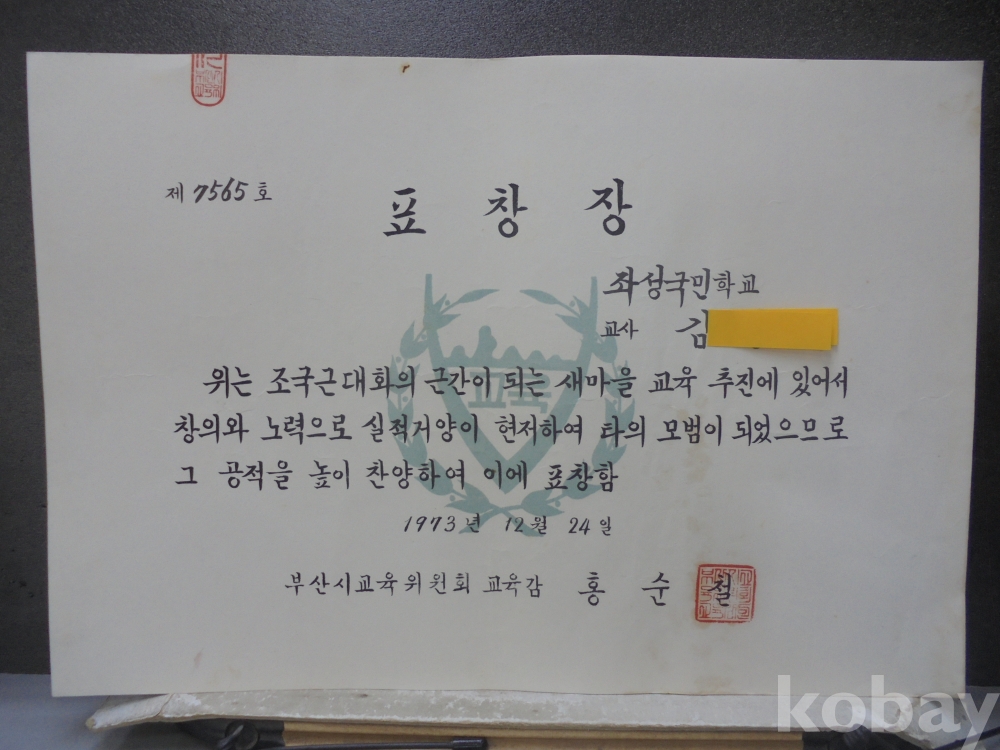 제 7565 호
표 창 장
좌성국민학교
교사 김
위는 조국근대화의 근간이 되는 새마을 교육 추진에 있어서
창의와 노력으로 실적거양이 현저하여 타의 모범이 되었으므로
그 공적을 높이 찬양하여 이에 표창함
1973년 12월 24일
부산시교육위원회 교육감 홍 순 철
교육
kobay